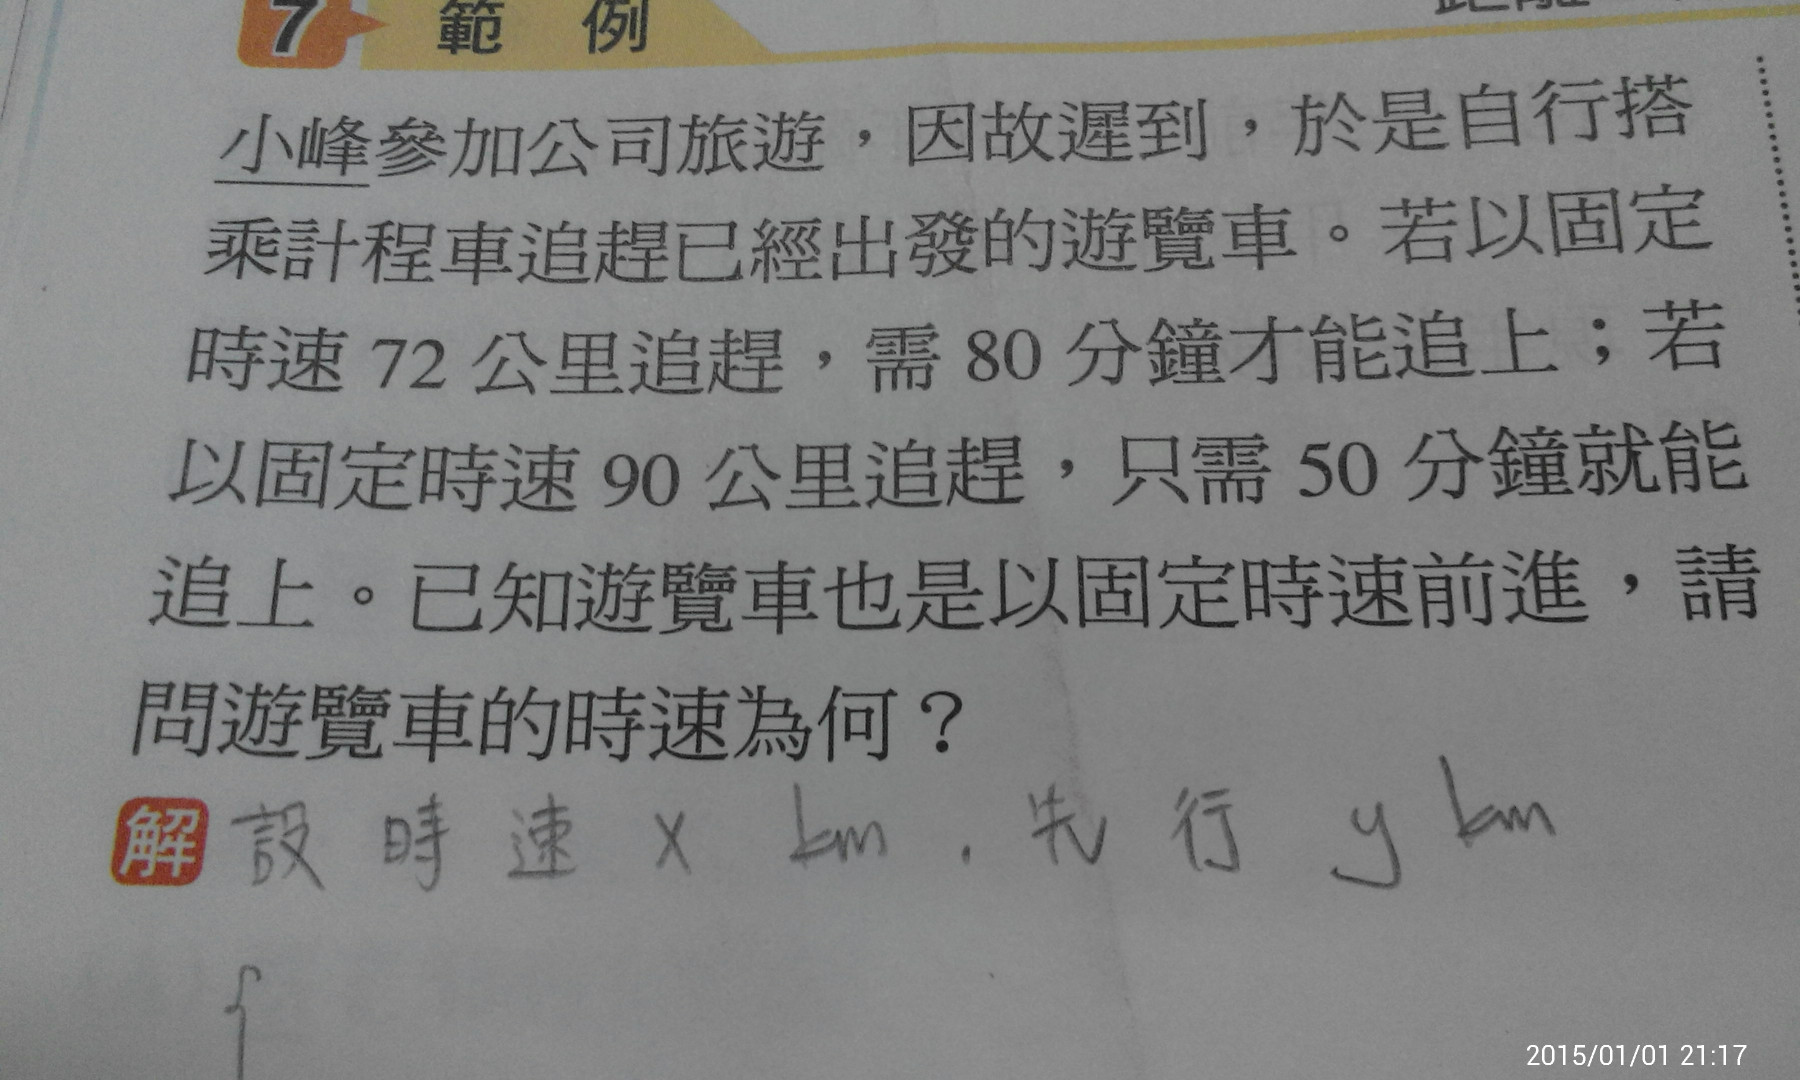 7 範例
小峰參加公司旅遊，因故遲到，於是自行搭
乘計程車追趕已經出發的遊覽車。若以固定
時速 72 公里追趕，需 80 分鐘才能追上；若
以固定時速 90 公里追趕，只需 50 分鐘就能
追上。已知遊覽車也是以固定時速前進，請
問遊覽車的時速為何？
解 設時速 x km . 先行 y km
{
2015/01/01 21:17